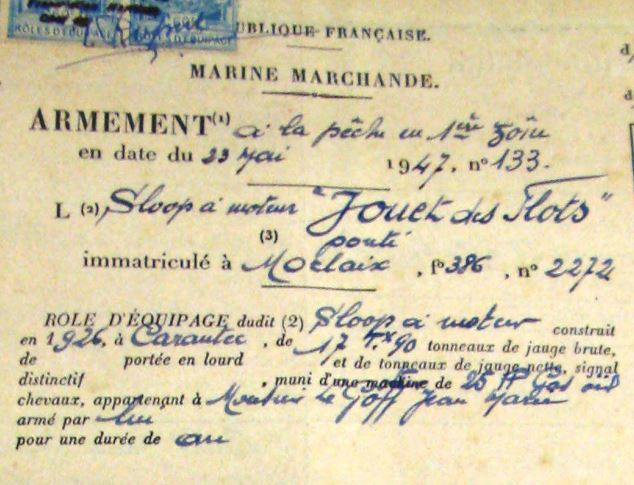 RÔLES D'ÉQUIPAGE
UBLIQUE FRANÇAISE.
MARINE MARCHANDE.
ARMEMENT(1) à la pêche en 1ère zône
en date du 23 Mai 1947, n° 133.
L (2) Sloop à moteur "Jouet des Flots"
(3) ponté
immatriculé à Morlaix, f° 386, n° 2272
ROLE D'ÉQUIPAGE dudit (2) Sloop à moteur construit
en 1926, à Carantec, de 17 Tx 90 tonneaux de jauge brute,
de portée en lourd et de tonneaux de jauge nette, signal
distinctif , muni d'une machine de 25 HP Gas oil
chevaux, appartenant à Monsieur Le Goff Jean Marie
armé par lui
pour une durée de an